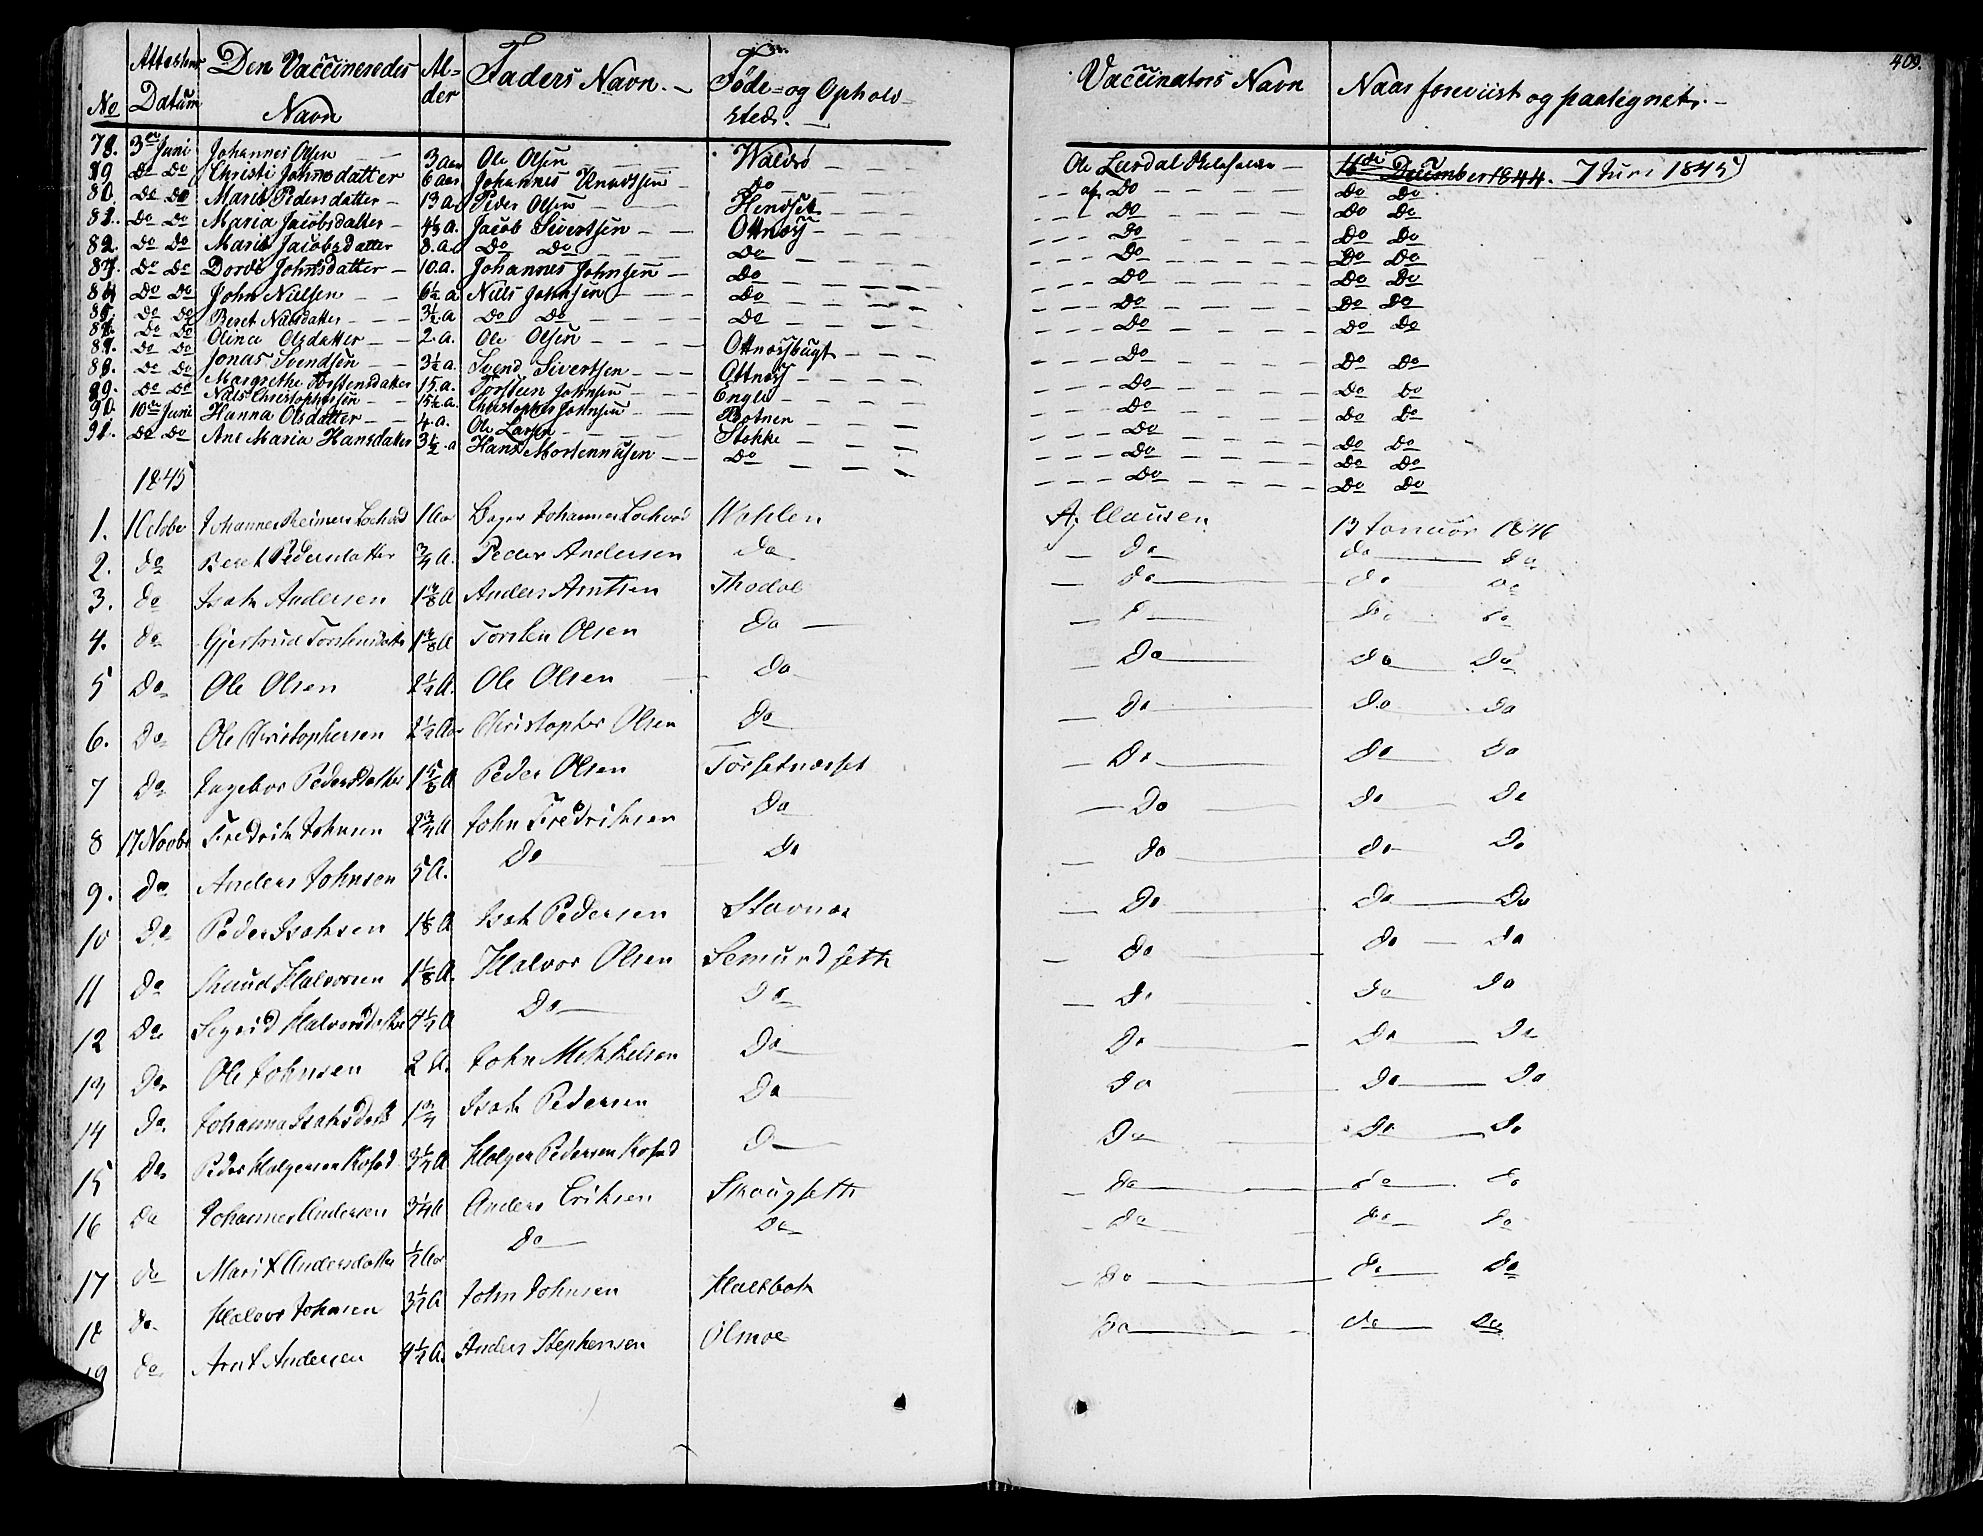 409.
No Attestens Datum Den Vaccineredes Navn Alder Faders Navn. Føde- og Opholdsted. Vaccinators Navn Naar foreviist og paategnet.
78. 3die Juni Johannes Olsen 3 aar Ole Olsen Waldsø Ole Lærdal 16de December 1844. 7 Juni 1845
79 Do Do Christi Johnsdatter 6 aar Johannes Knudtsen Do Do Do Do
80. Do Do Marit Pedersdatter 13 a. Peder Olsen Hendset Do Do Do
81. Do Do Maria Jacobsdatter 4½ a. Jacob Sivertsen Ottnæs Do Do Do
82. Do Do Marit Jacobsdatter 8. a. Do Do Do Do Do Do
83. Do Do Dordi Johnsdatter 10. a. Johannes Johnsen Do Do Do Do
84 Do Do John Nielsen 6½ a Niels Johnsen Do Do Do Do
85. Do Do Beret Nielsdatter 3½ a Do Do Do Do Do Do
86. Do Do Olina Olsdatter 2. a. Ole Olsen Ottnæsbugt Do Do Do
87. Do Do Jonas Svendsen 3½ a. Svend Sivertsen Ottnæs Do Do Do
88. Do Do Margrethe Torstensdatter 15. a. Torsten Johnsen Engle Do Do Do
89. Do Do Niels Christophersen 15½ a. Christopher Johnsen Botnen Do Do Do
90. 10de Juni Hanna Olsdatter 4. a. Ole Larsen Stokke Do Do Do
91. Do Do Ane Maria Hansdatter 3½ a Hans Mortennusen Do Do Do Do
1845
1. 1 Octobr Johannes Reimers Lochert 1 Aar Johannes Lochert Wahlen A. Clausen 13 Januar 1846
2. do Beret Pedersdatter ¾ A. Peder Andersen do do do do
3. do Isak Andersen 1⅜ A Anders Arntsen Thodal do do do
4. do Gjertrud Torstensdatter 1⅜ A Torsten Olsen Do do do do
5 Do Ole Olsen 2½ A. Ole Olsen Do Do Do Do
6. Do Ole Christophersen 2½ Aar Christopher Olsen Do Do Do Do
7 Do Ingebor Pedersdatter 1⅝ A Peder Olsen Torsetnæsset Do Do Do
8 17 Novbr Fredrik Johnsen 2¾ A John Fredriksen Do Do Do Do
9. Do Anders Johnsen 5 A. Do Do Do Do Do
10 Do Peder Isaksen 1⅛ A Isak Pedersen Stavnæs Do Do Do
11 Do Knud Halvorsen 1⅛ A. Halvor Olsen Semundseth Do Do Do
12 Do Segrid Halvorsdatter 4½ A Do Do Do Do Do
13 Do Ole Johnsen 2 A. John Mikkelsen Do Do Do Do
14 Do. Johanna Isaksdatt 1¾ Isak Pedersen Do Do Do Do
15 Do Peder Holgersen 3½ A Holger Pedersen Do Do Do Do
16 Do Johannes Andersen 3¼ A Anders Eriksen Skougseth Do do do
17 do Marit Andersdatter ½ Aar Do Do do do do
18 do Halvor Johnsen 3½ A John Johnsen Halsbak do do Do
19 do Arnt Andersen 4½ A. Anders Stephensen Olmoe Do do Do